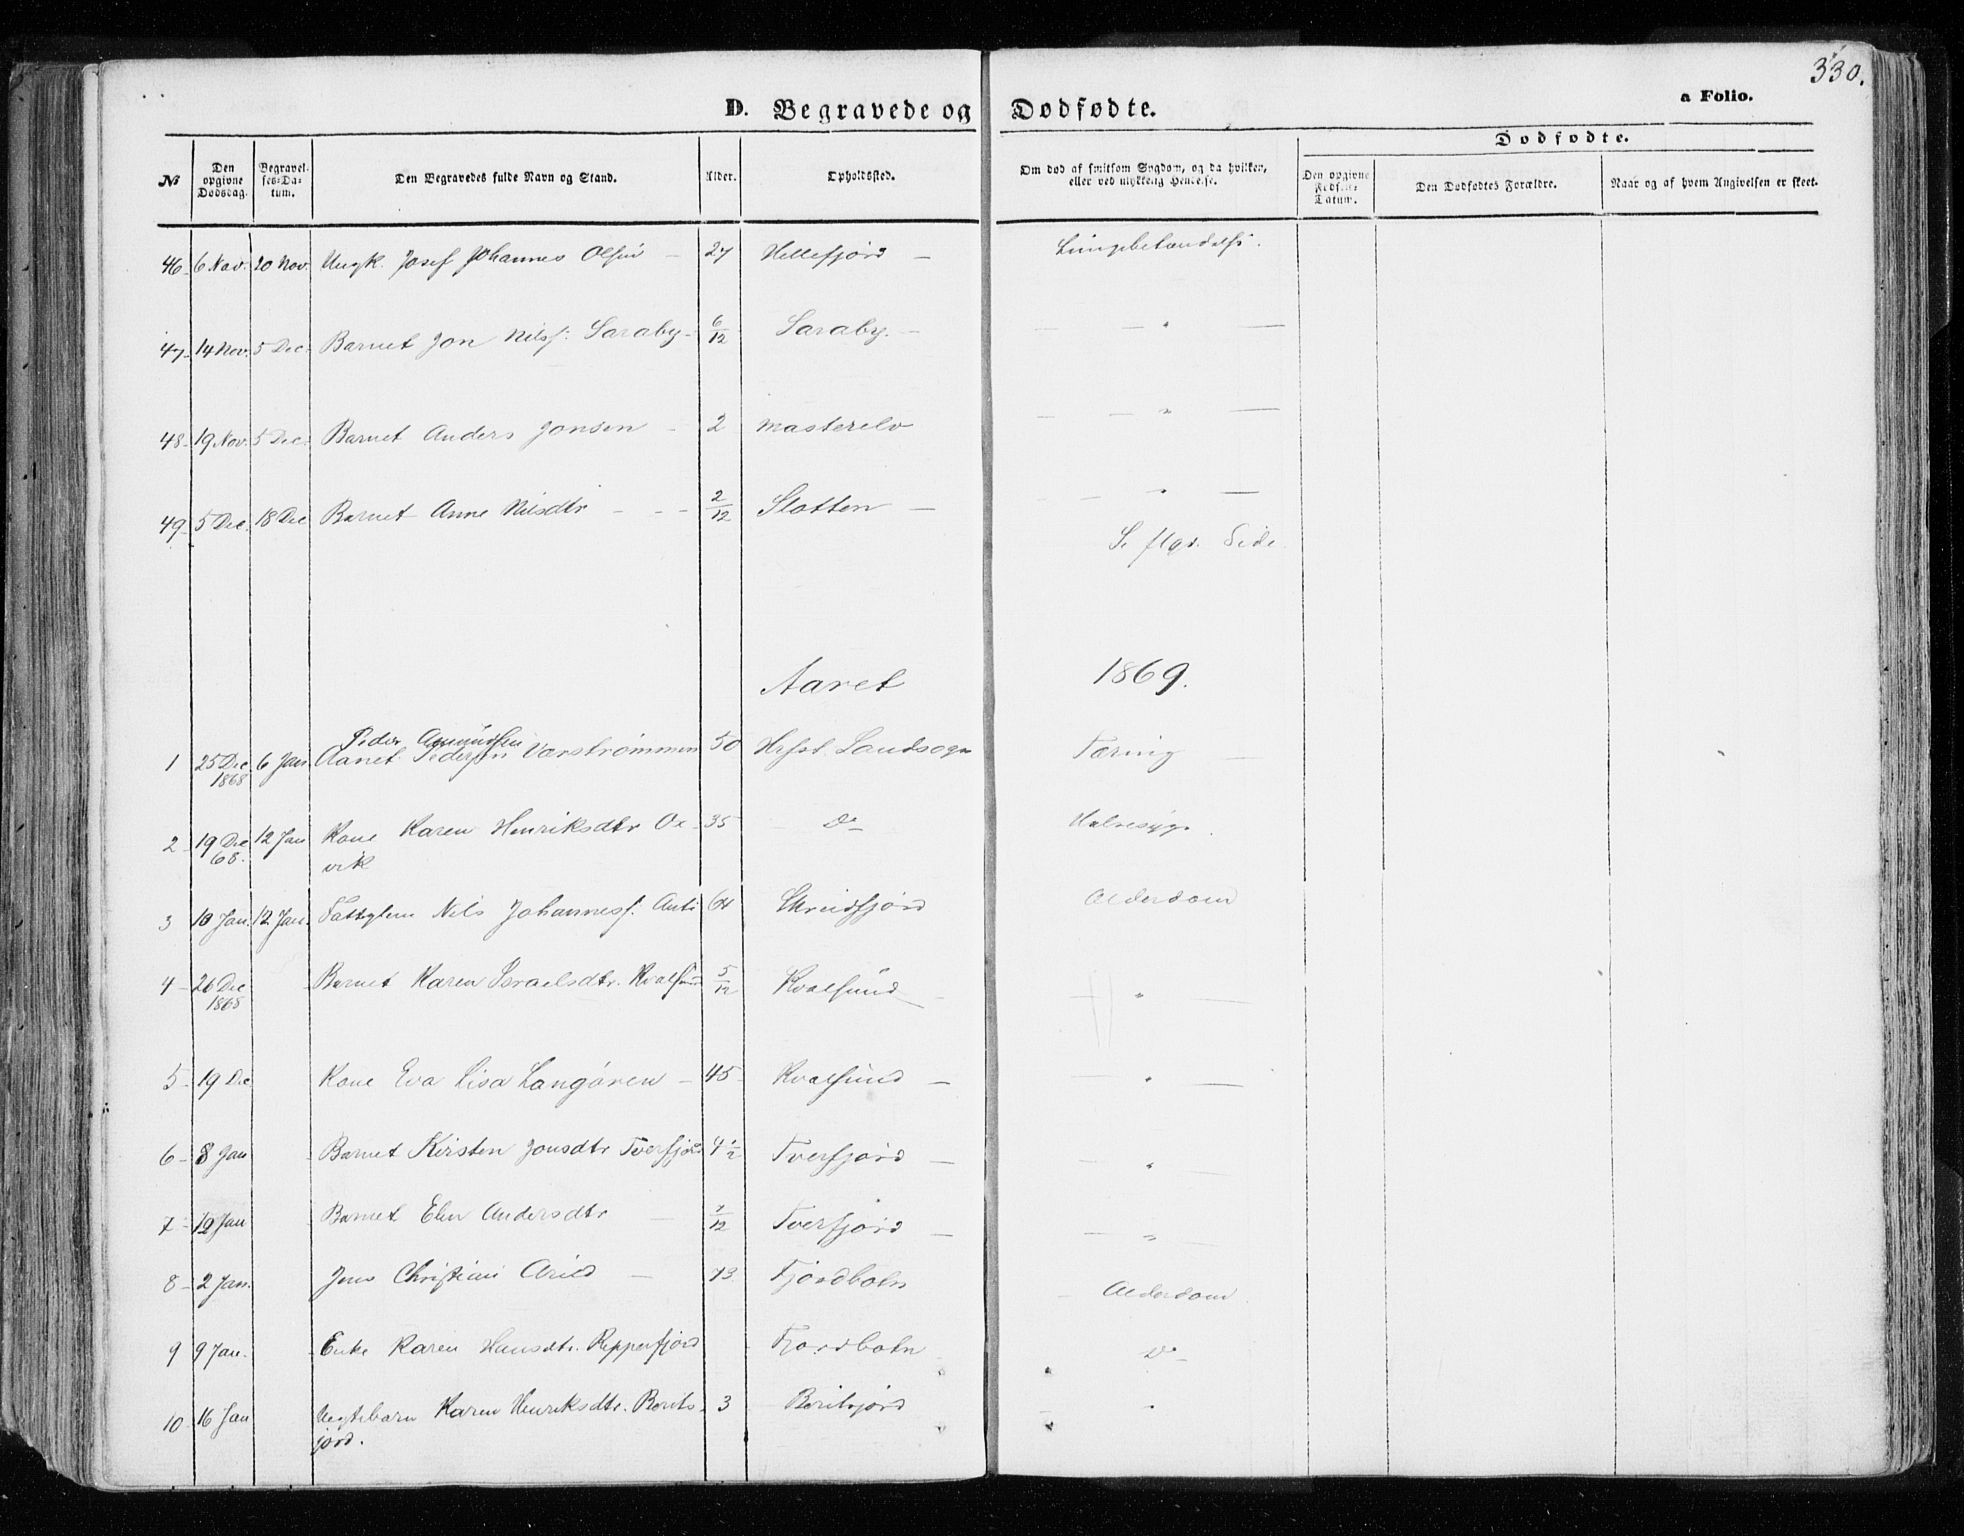 330.
D. Begravede og Dødfødte.
a Folio.
Dødfødte.
No
Den opgivne Dødsdag.
Begravelses-Datum.
Den Begravedes fulde Navn og Stand.
Alder.
Opholdssted.
Om død af smitsom Sygdom, og da hvilken, eller ved ulykkelig Hendelse.
Den opgivne Fødsels-Datum.
Den Dødfødtes Forældre.
Naar og af hvem Angivelsen er skeet.
46 6 Nov. 20 Nov. Ungk. Josef Johannes Olsen — 27 Hellefjord — Lungebetændelse.
47 14 Nov. 5 Dec. Barnet Jon Nilsf. Saraby 6/12 Saraby. — — " —
48 19 Nov. 5 Dec. Barnet Anders Jonsen — 2 Masterelv — " —
49 5 Dec. 18 Dec Barnet Anne Nilsdtr — — — 2/12 Slotten — — " —
S. flgd. Side
Aaret 1869.
Peder Amundsen
1 25 Dec 6 Jan Aanet Pedersen Varstrømmen 50 Hfst. Landsogn Tæring —
1868
2 19 Dec 12 Jan Kone Karen Henriksdtr Ox- 35 Do Halvesyge.
68. vik
3 10 Jan. 12 Jan. Fattiglem Nils Johannesf. Anti 64 Skreidfjord Alderdom
4 26 Dec Barnet Karen Israelsdtr. Kvalsund 5/12 Kvalsund — — " —
1868
5 19 Dec Kone Eva Lisa Langøren — 45 Kvalsund — — " —
6 8 Jan Barnet Kirsten Jonsdtr Tverfjord 4 1/2 Tverfjord — — " —
7 12 Jan Barnet Elen Andersdtr — 7/12 Tverfjord — — " —
8 2 Jan. Jens Christian Arild — 73 Fjordbotn — Alderdom.
9 9 Jan. Enke Karen Hansdtr. Repperfjord Fjordbotn Do
10 16 Jan Uægtebarn Karen Henriksdtr. Bents- 3 "
jord.